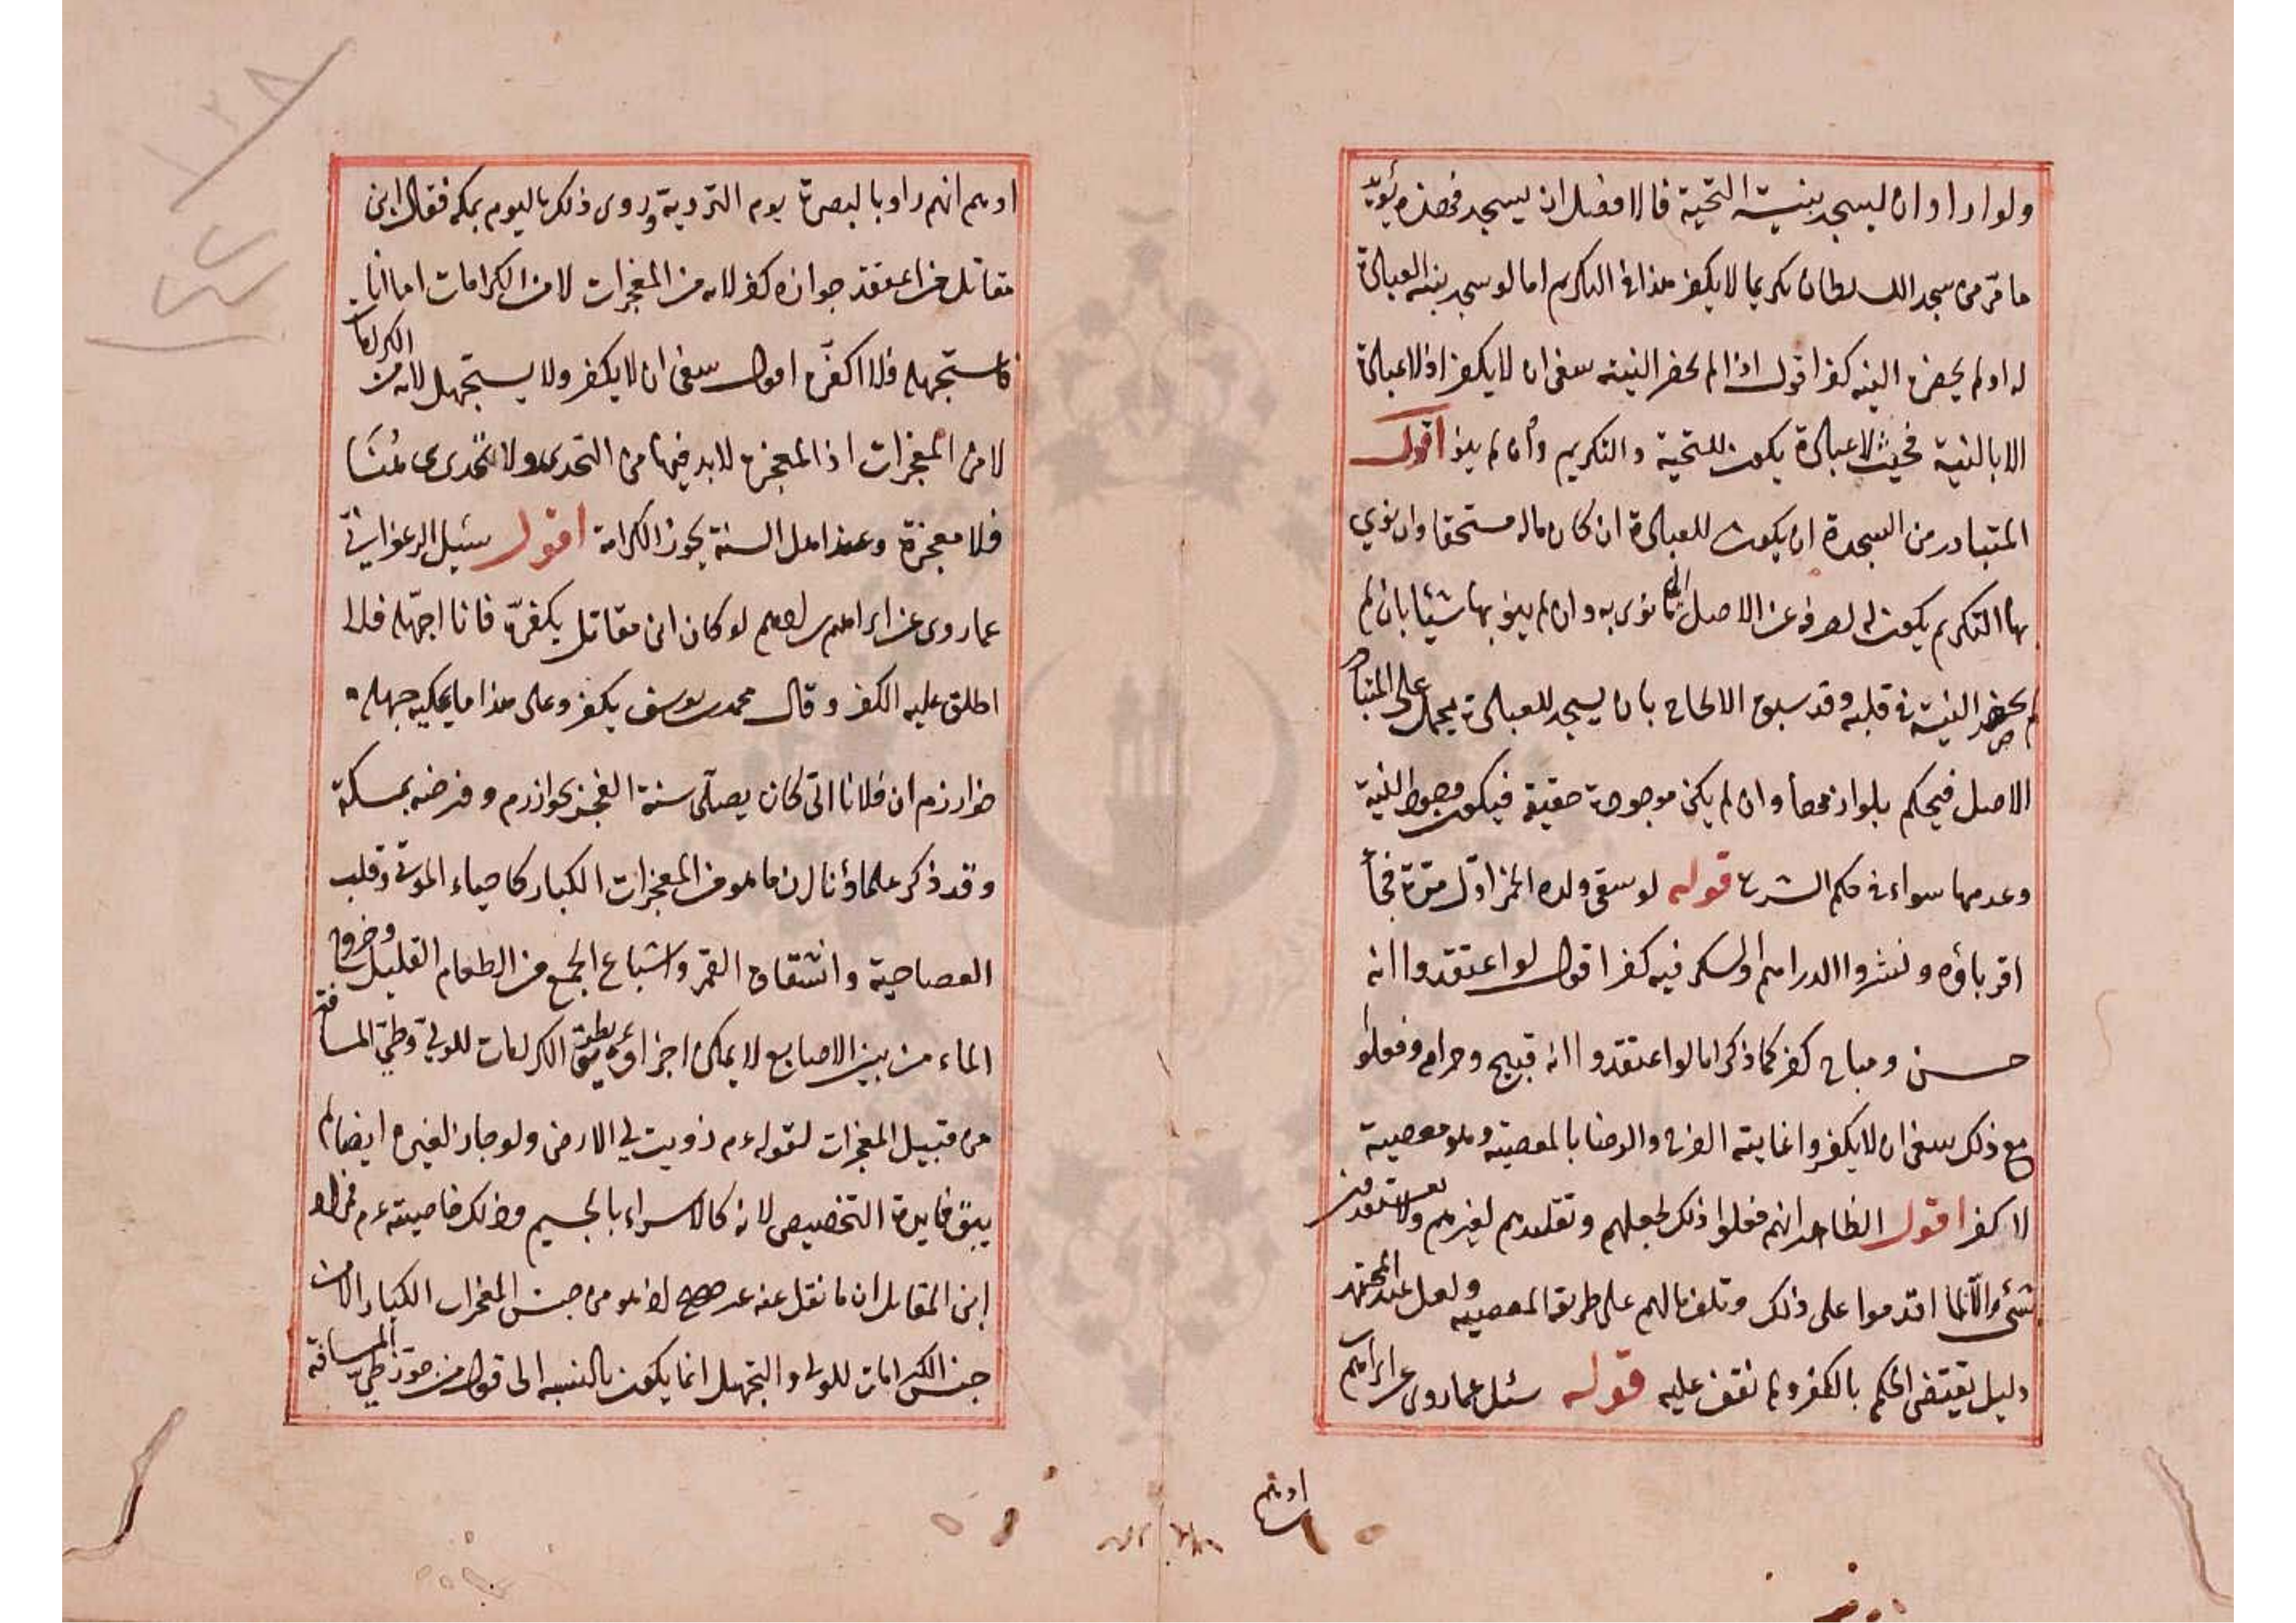 ولو ارادوا ان ليسجد بنية التحية فالافضل ان ليسجد فهذه يؤيد
ما مر من سجد السلطان تكريما لا يكفر هذا في التكريم اما لو سجد بنية العبادة
له او لم يحضره النية كفر اقول اذا لم يحضر النية ينبغي ان لا يكفر اذ لا عبادة
الا بالنية فحيث لا عبادة يكون للتحية والتكريم وان لم ينو اقول
المتبادر من السجدة ان يكون للعبادة ان كان ماله مستحقا وان نوي
بها التكريم يكون له لصرفه عن الاصل الى ما نوى به وان لم ينو بها شيئا بان لم
لم يحضر النية في قلبه وقد سبق الالحاح بان يسجد للعبادة يحمل على المتبادر
الاصل فيحكم بلوازمها وان لم يكن موجودة حقيقة فيكون وجود النية
وعدمها سواء في حكم الشرع قوله لو سقى ولده الخمر اول مرة فجاء
اقرباؤه ونثروا الدراهم او السكر فيه كفر اقول لو اعتقدوا انه
حسن ومباح كفر كما ذكر اما لو اعتقدوا انه قبيح وحرام وفعلوا
مع ذلك ينبغي ان لا يكفروا غايته الفرح والرضا بالمعصية وهو معصية
لا كفر اقول الظاهر انهم فعلوا ذلك لجهلهم وتقليدهم لغيرهم
شيء والا لما اقدموا على ذلك وتلف مالهم على طريق المعصية ولعل عند المجتهد
دليل يقتضي الحكم بالكفر ولم نقف عليه قوله سئل عما روى عن ابراهيم
ادهم
ادهم انهم راوه بالبصرة يوم التروية وروى ذلك باليوم بمكة فقال ابن
مقاتل من اعتقد جوازه كفر لانه من المعجزات لا من الكرامات اما انا
فاستجهله فلا اكفره اقول ينبغي ان لا يكفر ولا يستجهل لانه من الكرامات
لا من المعجزات اذ المعجزة لا بد فيها من التحدي ولا تحدي هنا
فلا معجزة وعند اهل السنة يجوز الكرامة اقول سئل الزعفراني
عما روى عن ابراهيم بن ادهم لو كان ابن مقاتل يكفره فانا اجهله فلا
اطلق عليه الكفر وقال محمد بن يوسف يكفر وعلى هذا ما يحكيه جهلة
خوارزم ان فلانا التي كان يصلى سنة الفجر بخوارزم وفرضه بمكة
وقد ذكر علماؤنا ان ما هو من المعجزات الكبار كاحياء الموتى وقلب
العصا حية وانشقاق القمر واشباع الجمع من الطعام القليل وخروج
الماء من بين الاصابع لا يمكن اجراؤه بطريق الكرامات للولي وطي المسافة
من قبيل المعجزات لقوله عم زويت لي الارض ولو جاز لغيره ايضا لم
يبق فايدة التخصيص لانه كالاسراء بالجسم وذلك خاصيته عم
ابن المقاتل ان ما نقل عنه غير صحيح اذ هو من جنس المعجزات الكبار لا من
جنس الكرامات للولي والتجهيل انما يكون بالنسبة الى قول من جوز طي المسافة